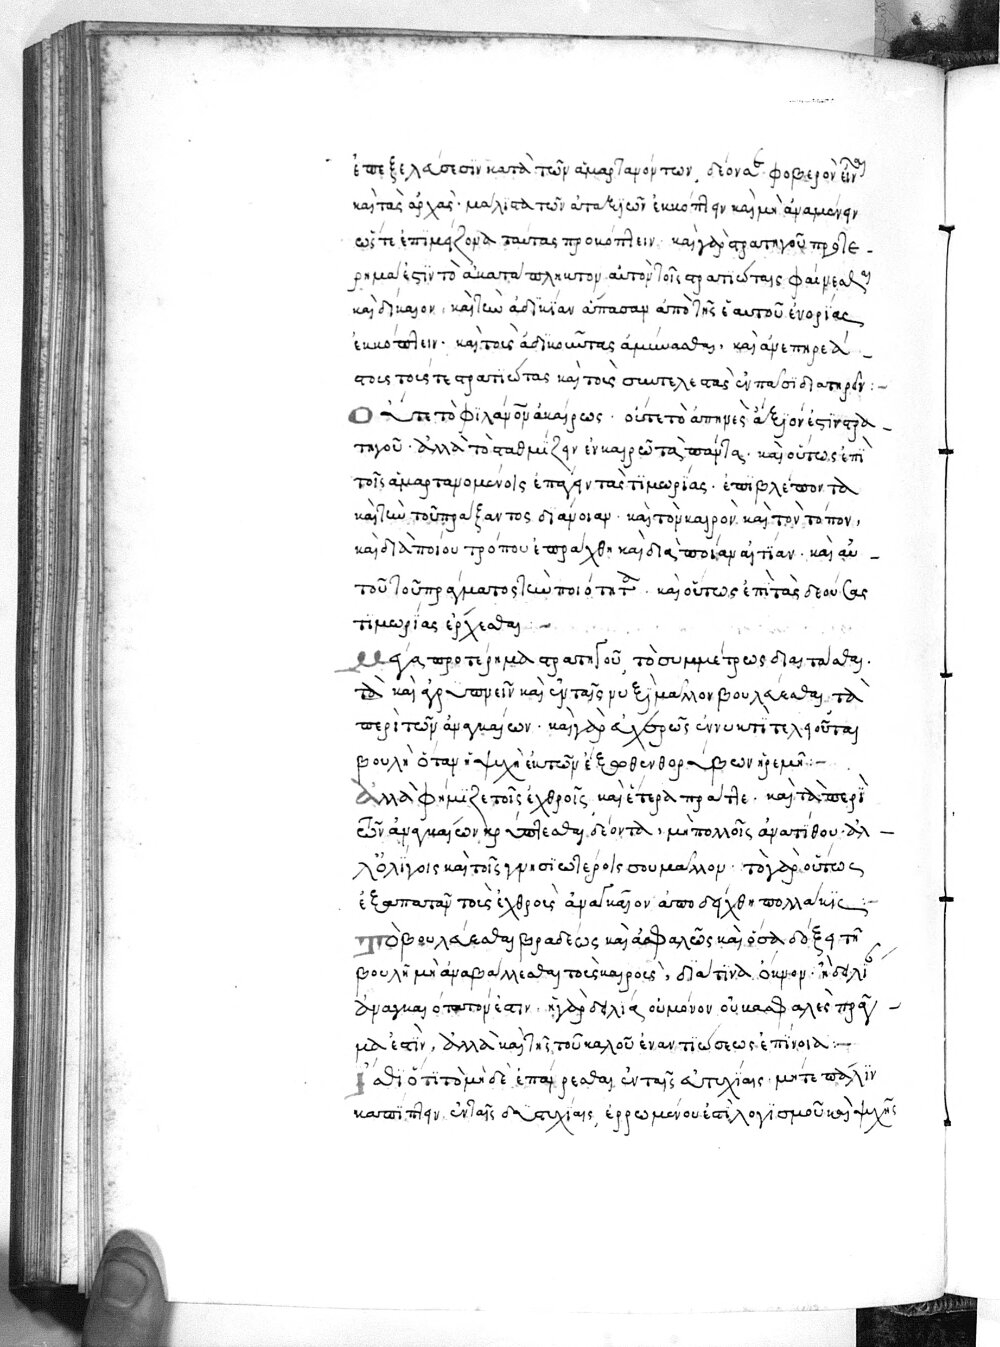 ἐπεξελάσεσιν κατὰ τῶν ἁμαρτανόντων, δέον φοβερὸν εἶναι
καὶ τὰς ἀρχὰς· μάλιστα τῶν ἀταξιῶν ἐκκόπτειν καὶ μὴ ἀναμένειν
ὥστε ἐπὶ μείζονα ταύτας προκόπτειν· καὶ γὰρ στρατηγοῦ προτε-
ρημα ἐστὶν τὸ ἀκατάπληκτον αὐτὸν τοῖς στρατιώταις φαίνεσθαι
καὶ δίκαιον· καὶ τὴν ἀδικίαν ἅπασαν ἀπὸ τῆς ἑαυτοῦ ἐνορίας
ἐκκόπτειν· καὶ τοῖς ἀδικοῦντας ἀμύνασθαι, καὶ ἀνεπηρεά-
στους τούς τε στρατιώτας καὶ τοὺς συντελεστὰς ἐν πᾶσι διατηρεῖν:-
Οὔτε τὸ φιλάνθρωπον ἀκαίρως· οὔτε τὸ ἀπηνὲς ἄξιον ἐστὶν στρα-
τηγοῦ· ἀλλὰ τὸ σταθμίζειν ἐν καιρῶ τὰ πάντα· καὶ οὕτως ἐπὶ
τοῖς ἁμαρτανομένοις ἐπάγειν τὰς τιμωρίας· ἐπιβλέποντα
καὶ τὴν τοῦ πράξαντος διάνοιαν· καὶ τὸν καιρὸν καὶ τὸν τόπον,
καὶ διὰ ποίου τρόπου ἐπράχθη καὶ διὰ ποίαν αἰτίαν· καὶ αὐ-
τοῦ τοῦ πράγματος τὴν ποιότητα· καὶ οὕτως ἐπὶ τὰς δεούσας
τιμωρίας ἔρχεσθαι:-
Μέγα προτέρημα στρατηγοῦ, τὸ συμμέτρως διαιτᾶσθαι·
τὸ καὶ ἀγρυπνεῖν καὶ ἐν ταῖς νυξὶ μᾶλλον βουλεύεσθαι τὰ
περὶ τῶν ἀναγκαίων· καὶ γὰρ εὐχερῶς ἐν νυκτὶ τελειοῦται
βουλὴ ὅταν ἡ ψυχὴ ἐκ τῶν ἔξωθεν θορύβων ἠρεμῆ:-
Ἄλλα φήμιζε τοῖς ἐχθροῖς καὶ ἕτερα πράττε· καὶ τὰ περὶ
τῶν ἀναγκαίων κρύπτεσθαι δέοντα, μὴ πολλοῖς ἀνατίθου· ἀλ-
λ' ὀλίγοις καὶ τοῖς γνησιωτέροις σου μᾶλλον· τὸ γὰρ οὕτως
ἐξαπατᾶν τοὺς ἐχθροὺς ἀναγκαῖον ἀπεδείχθη πολλάκις:-
Τὸ βουλεύεσθαι βραδέως καὶ ἀσφαλῶς καὶ ὅσα δόξει τῆ
βουλῆ μὴ ἀναβάλλεσθαι τοὺς καιροὺς, διά τινα ὄκνον ἢ δειλίαν
ἀναγκαιότατόν ἐστιν· ἡ γὰρ δειλία οὐ μόνον οὐκ ἀσφαλὲς πρᾶγ-
μα ἐστὶν, ἀλλὰ καὶ τῆς τοῦ καλοῦ ἐναντιώσεως ἐπίνοια:-
Ἴσθι ὅτι τὸ μηδὲ ἐπαίρεσθαι ἐν ταῖς εὐτυχίαις· μήτε πάλιν
καταπίπτειν ἐν ταῖς δυστυχίαις, ἐρρωμένου ἐστὶ λογισμοῦ καὶ ψυχῆς